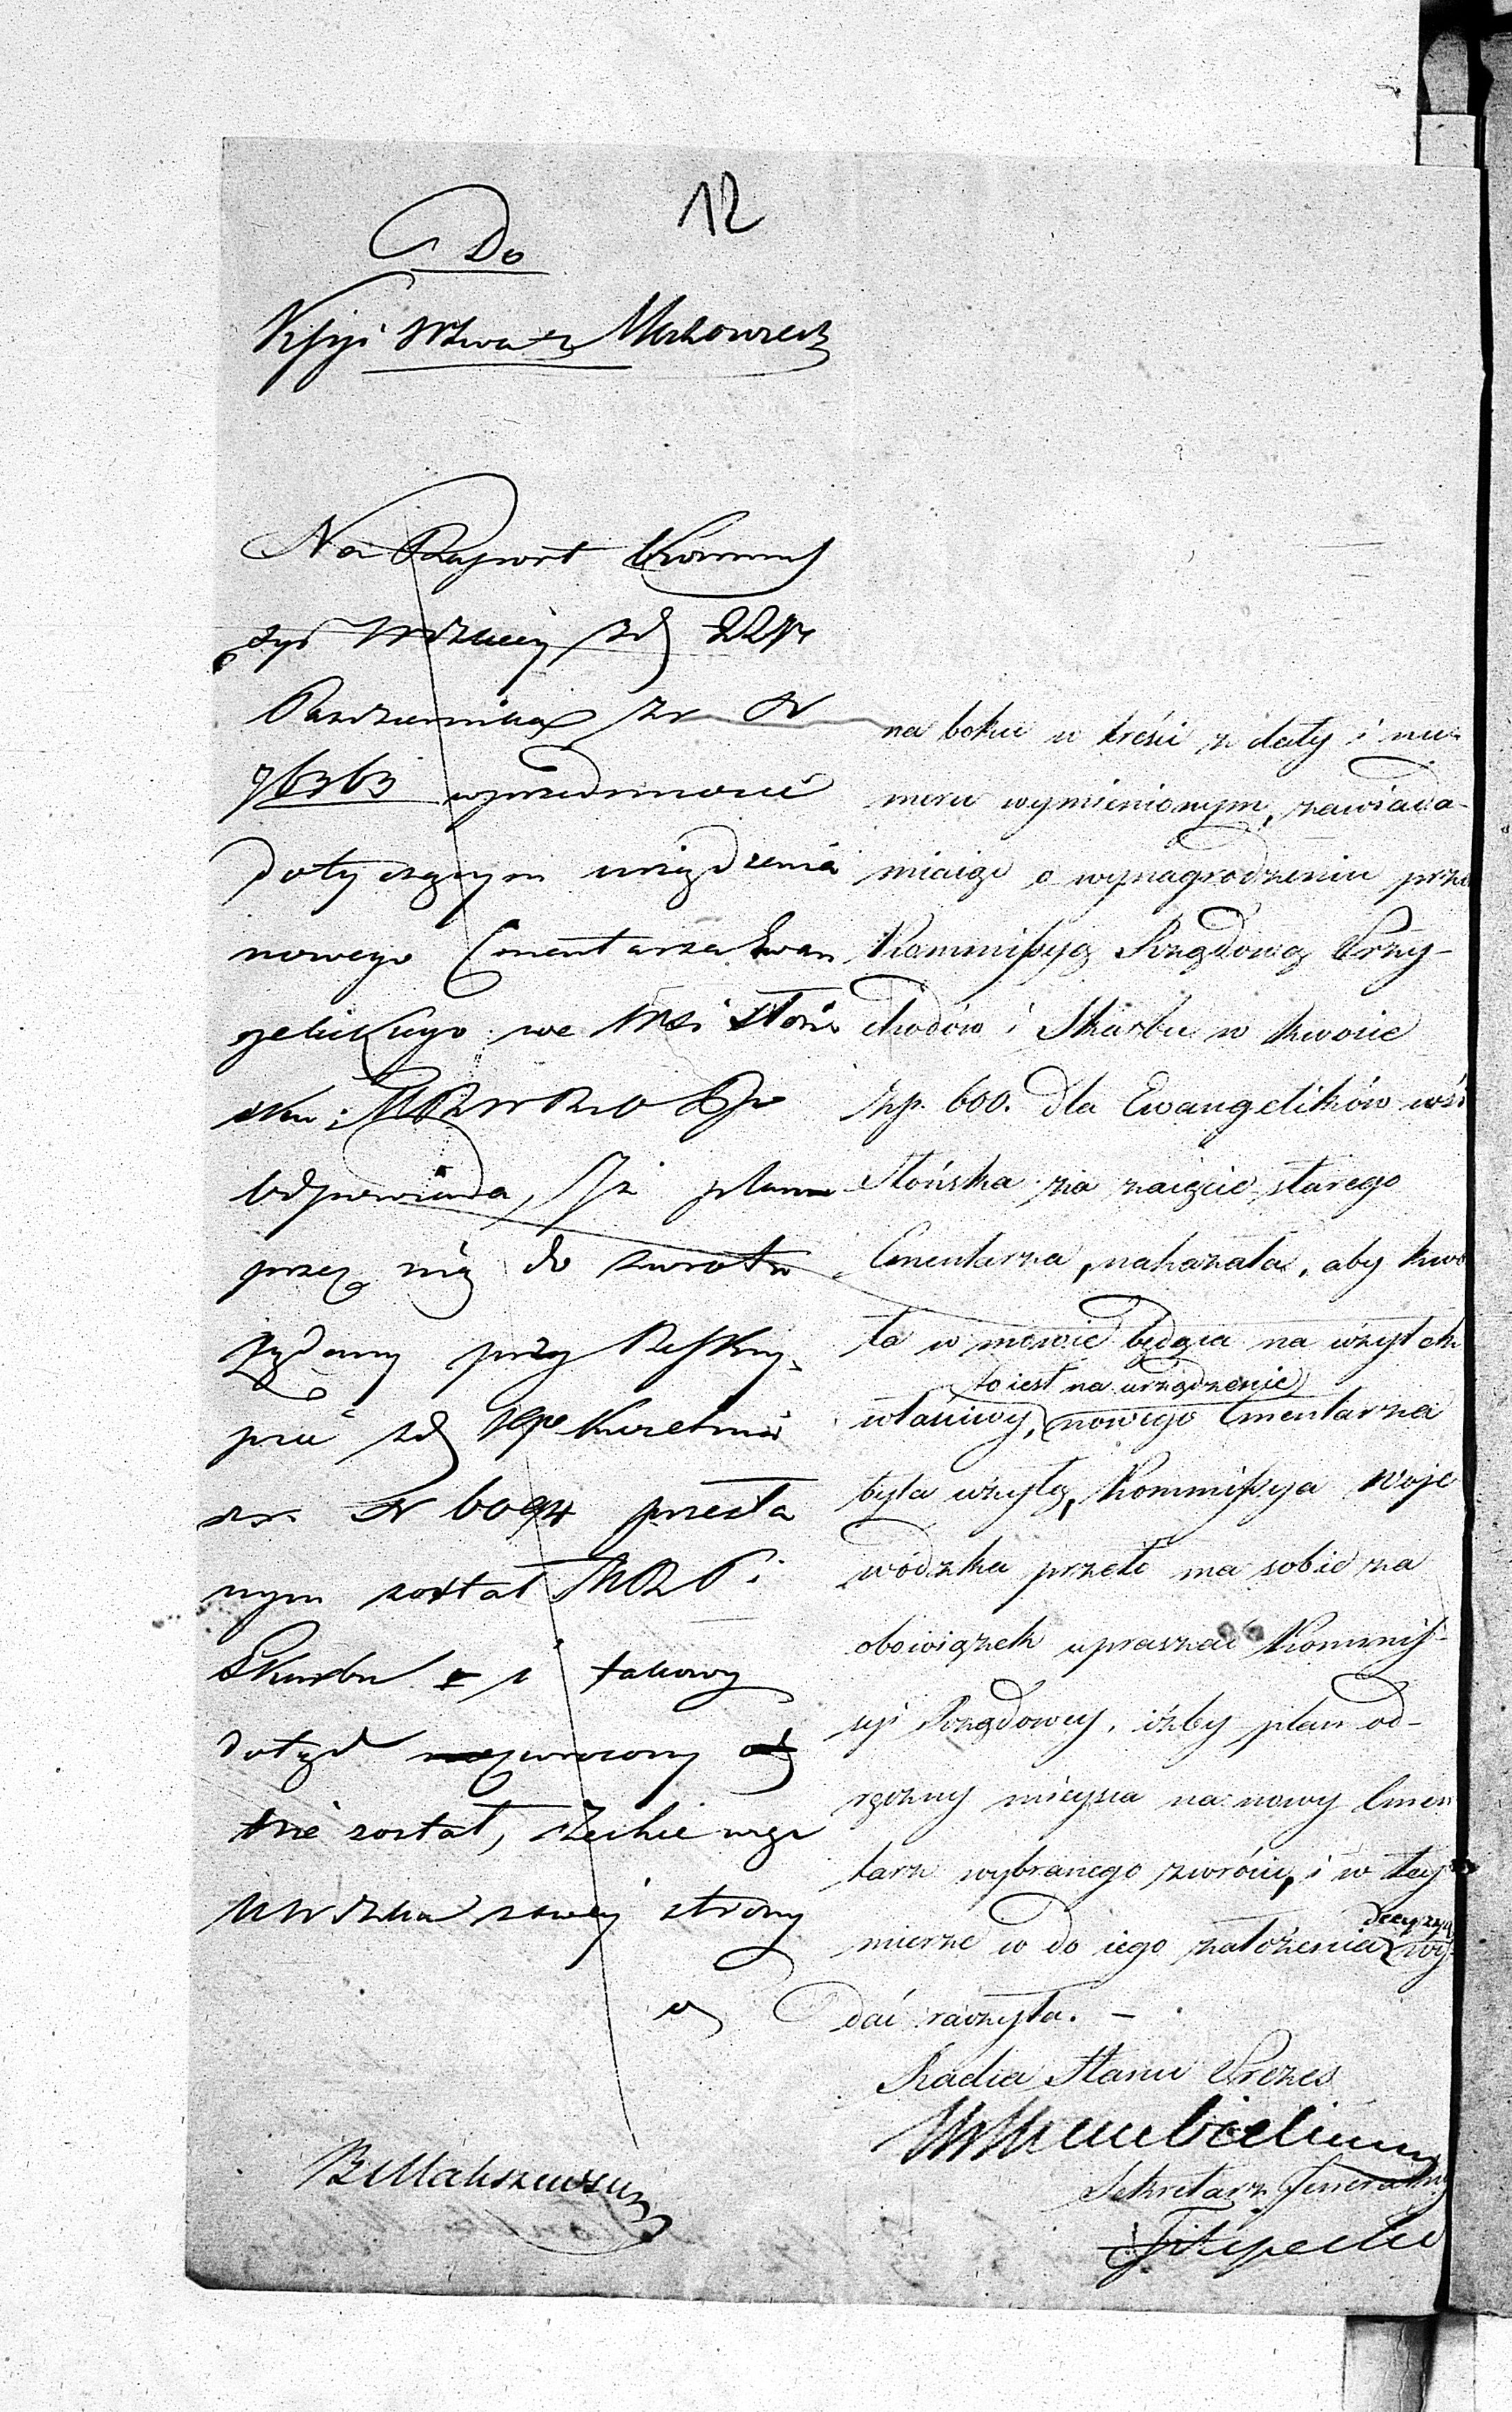 12
Do
Kssyi Wdzwa Mazowieck
Na Rapport Kommis
syi Wdzkiey z d 22
Pazdziernika z r N
76363 w przedmiocie
dotyczącym urządzenia
nowego Cmentarza Ewan
gelickiego we Wsi Słoń
sku
odpowiada, Iż plan
przez nią do zwrotu
żądany przy Reskry
pcie z d Kwietnia
N 6094 przesła
nym został
Skarbu i takowy
dotąd zwrócony
nie został, Zechce więc
strony
B Małuszewski
na boku w treści z daty i nu-
meru wymienionym, zawiada-
miaiąc o wynagrodzeniu prze
Kommissyą Rządową Przy-
chodów i Skarbu w kwocie
złp. 600. dla Ewangelików wsi
Słońska za zaięcie starego
Cmentarza, nakazała, aby kwo
ta w mowie będąca na użytek
to iest na urządzenie
właściwy, nowego Cmentarza
była użytą, Kommissya Woje
wódzka przeto ma sobie za
obowiązek upraszać Kommis-
syi Rządowey, iżby plan od-
ręczny mieysca na nowy Cmen
tarz wybranego zwrócić, i w tey
decyzyą
mierze w do iego założenia wy-
dać raczyła. -
Radca Stanu Prezes
Sekretarz Jeneralny
Filipecki